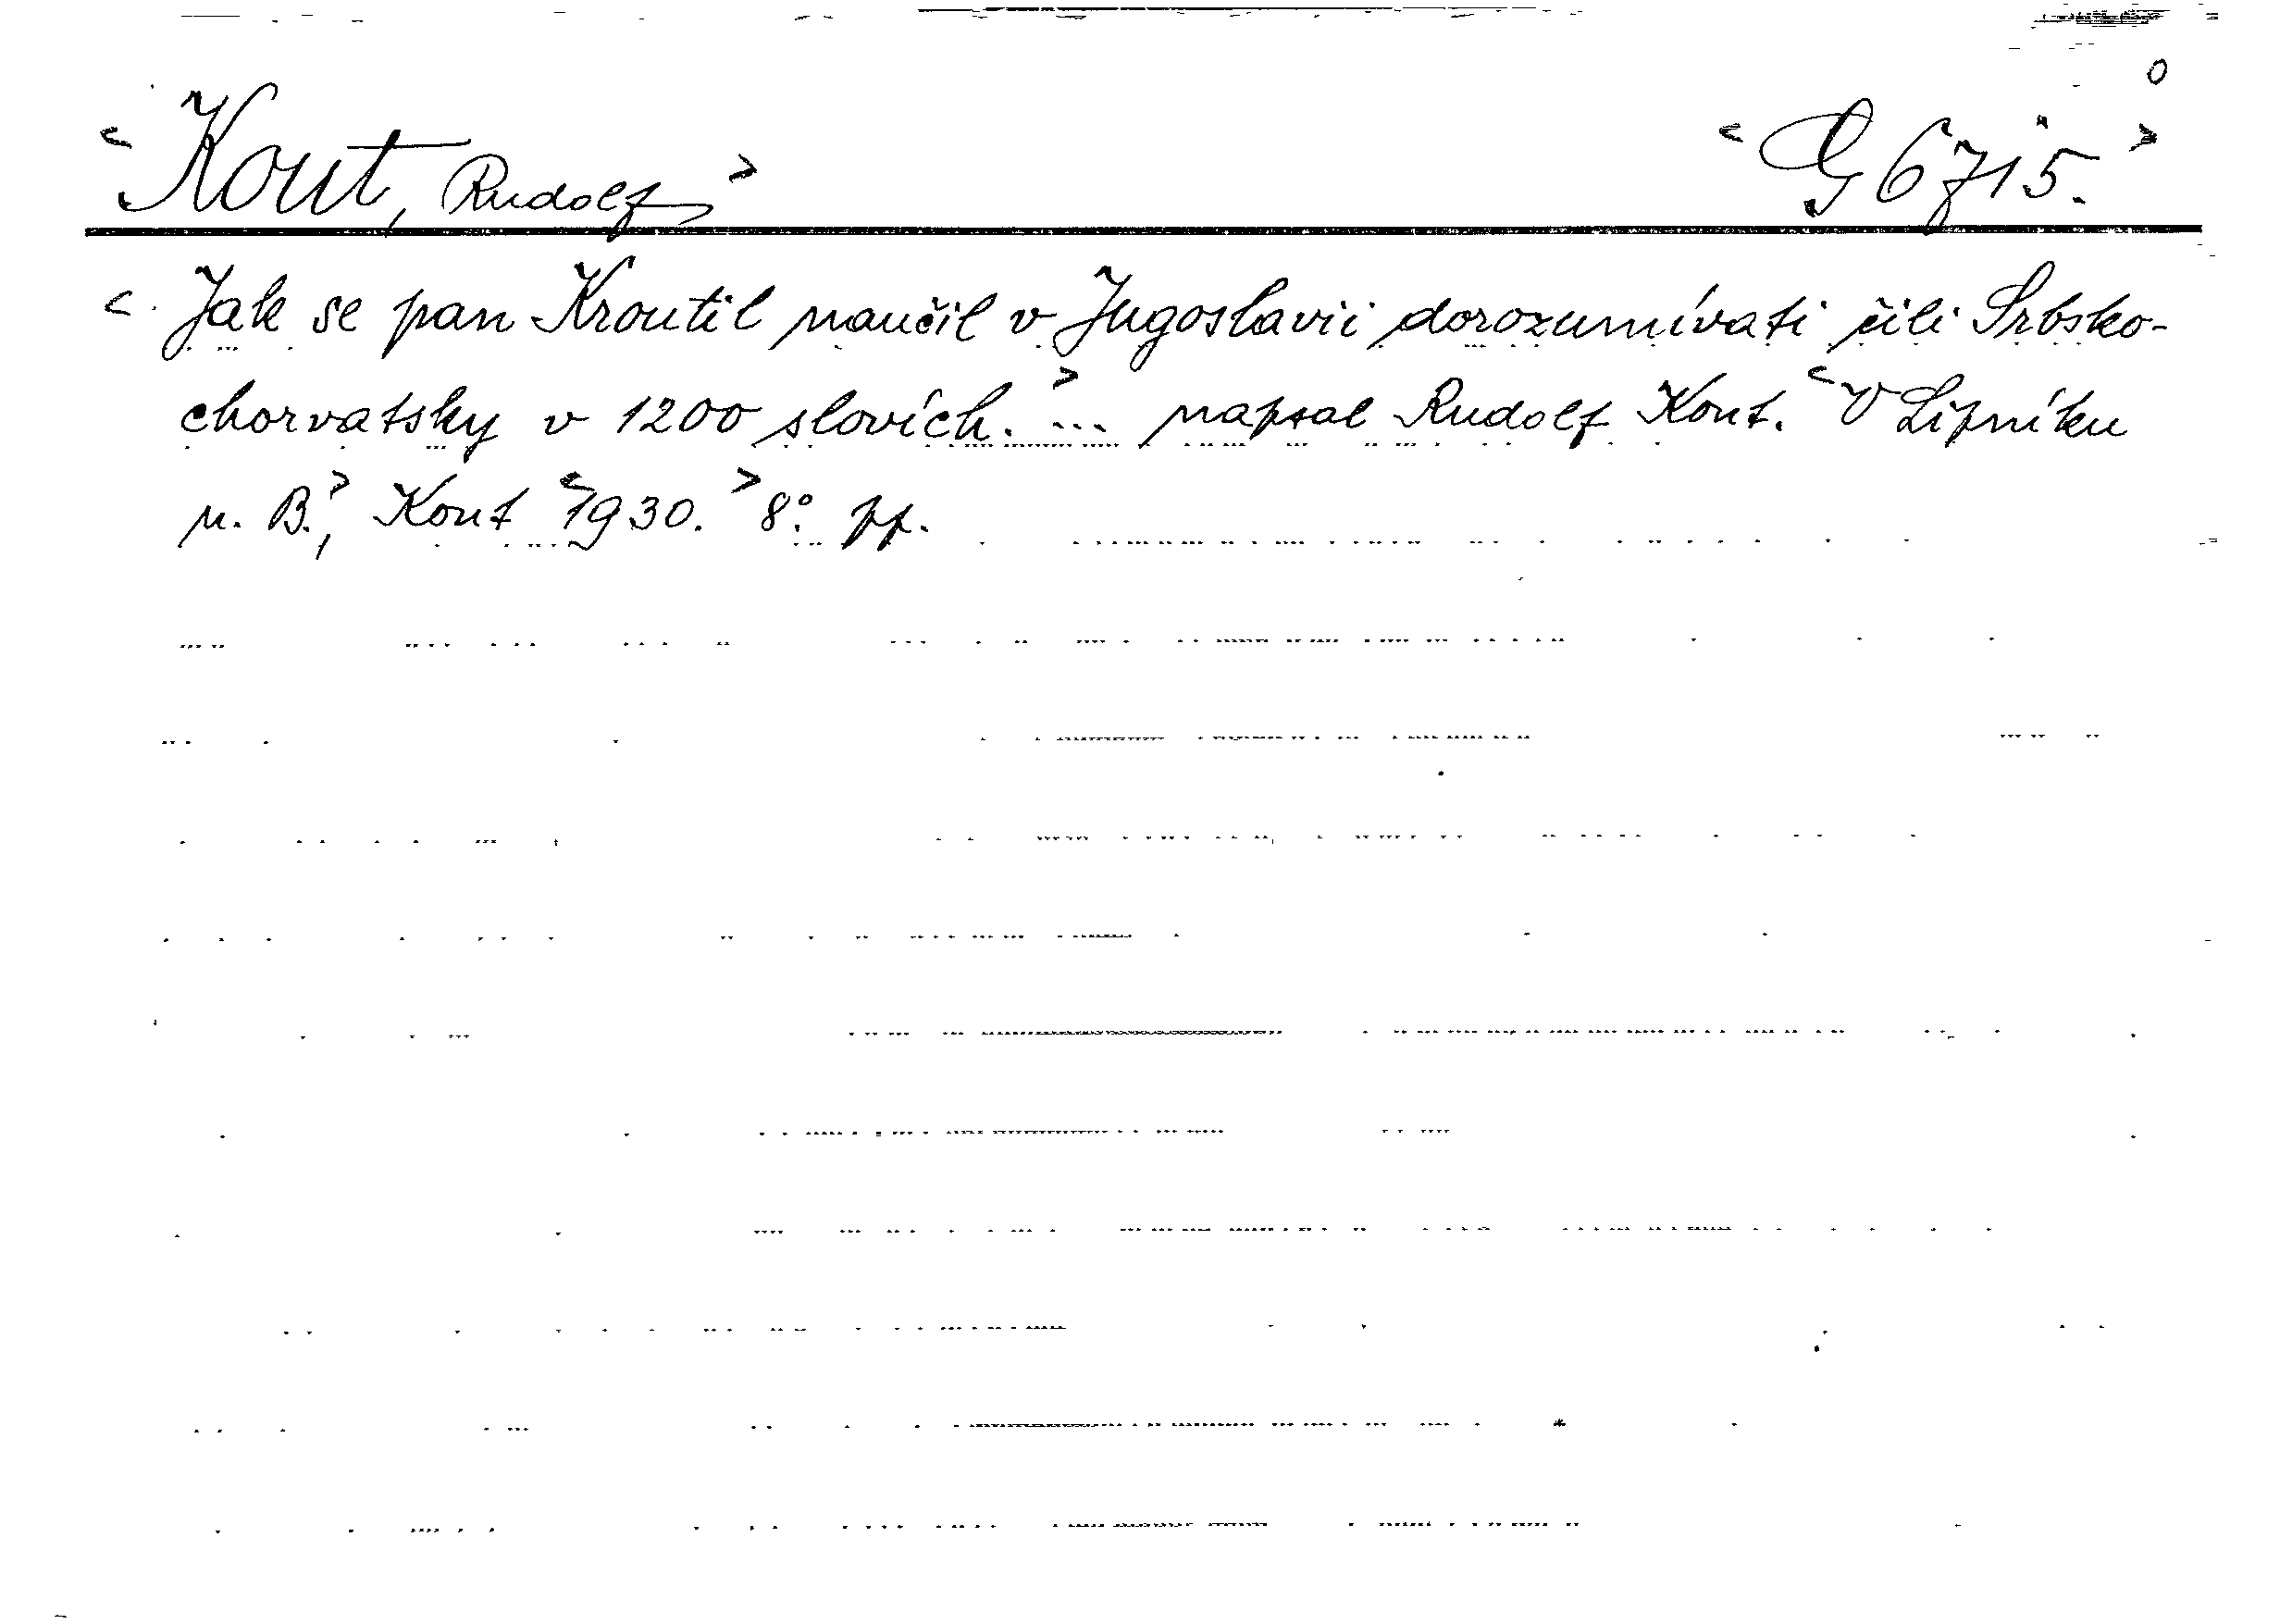 0
< Kout, Rudolf > < G 6715. >
< Jak se pan Kroutil naučil v Jugoslavii dorozumívati čili Srbsko-
chorvatsky v 1200 slovích. > ... napsal Rudolf Kout. < V Lipníku
n. B. >, Kout < 1930. > 8°. pp.